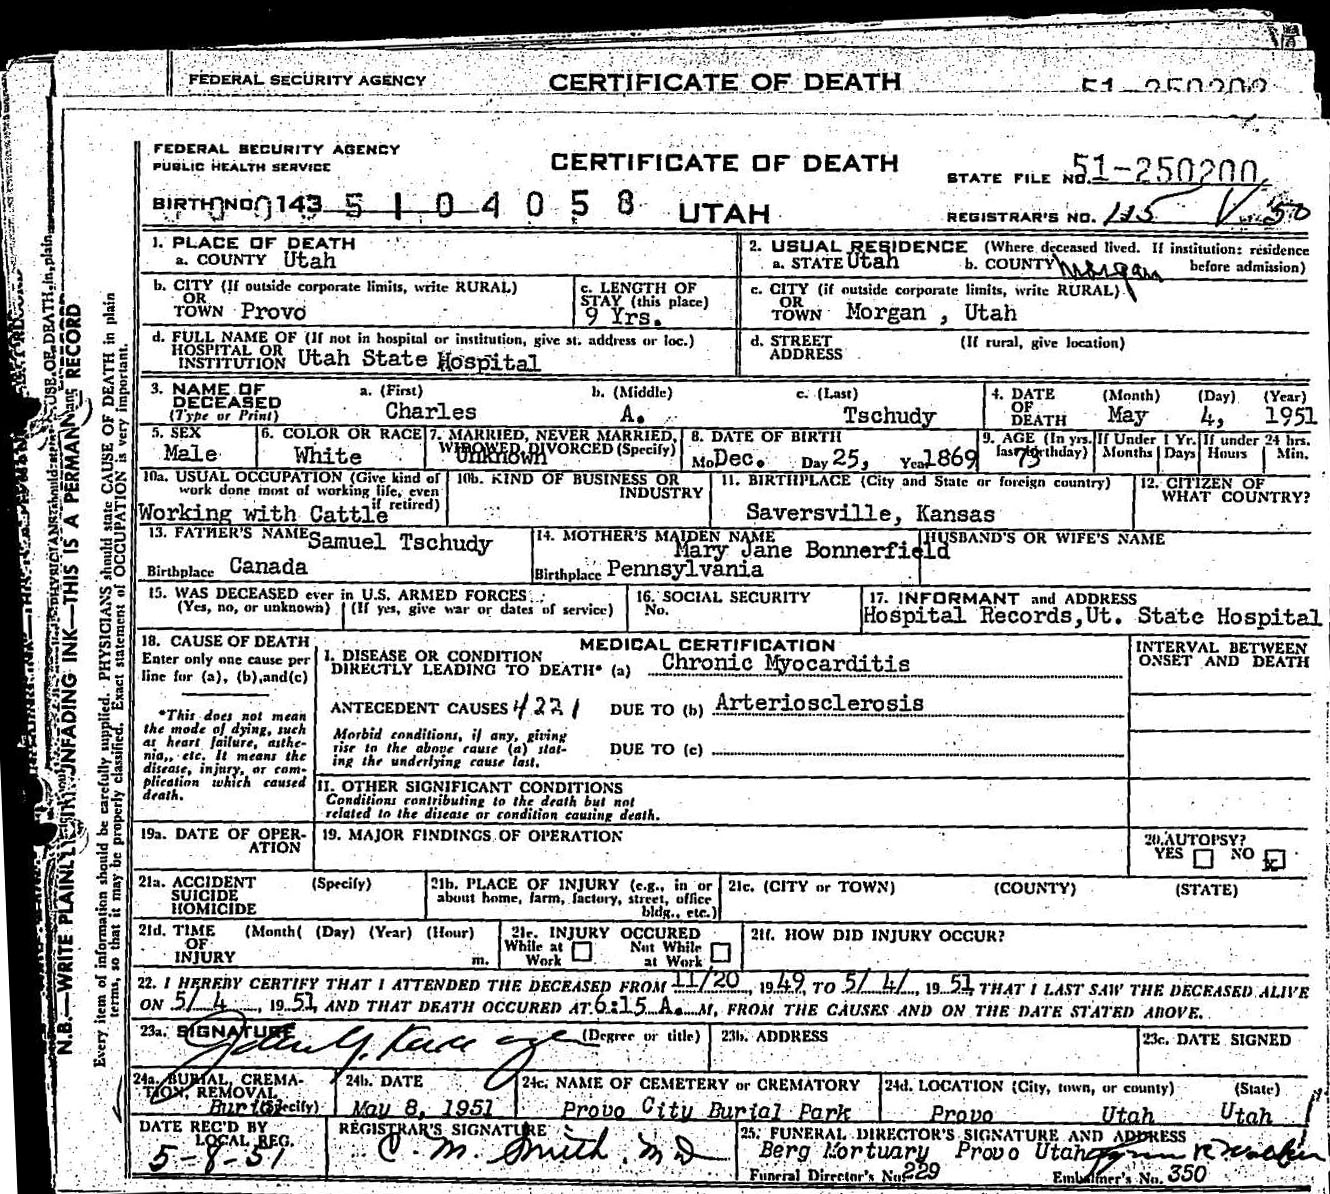 FEDERAL SECURITY AGENCY CERTIFICATE OF DEATH 51-250208
FEDERAL SECURITY AGENCY
PUBLIC HEALTH SERVICE
CERTIFICATE OF DEATH
STATE FILE NO. 51-250200
BIRTH NO. 143 5 1 0 4 0 5 8 UTAH
REGISTRAR'S NO. 115 V 50
1. PLACE OF DEATH
a. COUNTY Utah
2. USUAL RESIDENCE (Where deceased lived. If institution: residence
a. STATE Utah b. COUNTY Morgan before admission)
b. CITY (If outside corporate limits, write RURAL)
OR
TOWN Provo
c. LENGTH OF
STAY (this place)
9 Yrs.
c. CITY (if outside corporate limits, write RURAL)
OR
TOWN Morgan , Utah
d. FULL NAME OF (If not in hospital or institution, give st. address or loc.)
HOSPITAL OR
INSTITUTION Utah State Hospital
d. STREET (If rural, give location)
ADDRESS
3. NAME OF
DECEASED
(Type or Print)
a. (First) b. (Middle) c. (Last)
Charles A. Tschudy
4. DATE (Month) (Day) (Year)
OF
DEATH May 4, 1951
5. SEX
Male
6. COLOR OR RACE
White
7. MARRIED, NEVER MARRIED,
WIDOWED, DIVORCED (Specify)
Unknown
8. DATE OF BIRTH
Mo Dec. Day 25, Year 1869
9. AGE (In yrs. last birthday)
73
If Under 1 Yr.
Months Days
If under 24 hrs.
Hours Min.
10a. USUAL OCCUPATION (Give kind of
work done most of working life, even
if retired)
Working with Cattle
10b. KIND OF BUSINESS OR
INDUSTRY
11. BIRTHPLACE (City and State or foreign country)
Saversville, Kansas
12. CITIZEN OF
WHAT COUNTRY?
13. FATHER'S NAME Samuel Tschudy
Birthplace Canada
14. MOTHER'S MAIDEN NAME
Mary Jane Bonnerfield
Birthplace Pennsylvania
HUSBAND'S OR WIFE'S NAME
15. WAS DECEASED ever in U.S. ARMED FORCES
(Yes, no, or unknown) (If yes, give war or dates of service)
16. SOCIAL SECURITY
No.
17. INFORMANT and ADDRESS
Hospital Records,Ut. State Hospital
18. CAUSE OF DEATH
Enter only one cause per
line for (a), (b),and(c)
*This does not mean
the mode of dying, such
as heart failure, asthe-
nia,, etc. It means the
disease, injury, or com-
plication which caused
death.
MEDICAL CERTIFICATION
I. DISEASE OR CONDITION
DIRECTLY LEADING TO DEATH* (a) Chronic Myocarditis
ANTECEDENT CAUSES 4221 DUE TO (b) Arteriosclerosis
Morbid conditions, if any, giving
rise to the above cause (a) stat-
ing the underlying cause last.
DUE TO (c)
INTERVAL BETWEEN
ONSET AND DEATH
II. OTHER SIGNIFICANT CONDITIONS
Conditions contributing to the death but not
related to the disease or condition causing death.
19a. DATE OF OPER-
ATION
19. MAJOR FINDINGS OF OPERATION
20. AUTOPSY?
YES NO X
21a. ACCIDENT (Specify)
SUICIDE
HOMICIDE
21b. PLACE OF INJURY (e.g., in or
about home, farm, factory, street, office
bldg., etc.)
21c. (CITY or TOWN) (COUNTY) (STATE)
21d. TIME (Month( (Day) (Year) (Hour)
OF
INJURY m.
21e. INJURY OCCURED
While at Work Not While at Work
21f. HOW DID INJURY OCCUR?
22. I HEREBY CERTIFY THAT I ATTENDED THE DECEASED FROM 11/20, 1949, TO 5/4/, 1951, THAT I LAST SAW THE DECEASED ALIVE
ON 5/4 1951, AND THAT DEATH OCCURED AT 6:15 A. M, FROM THE CAUSES AND ON THE DATE STATED ABOVE.
23a. SIGNATURE (Degree or title)
23b. ADDRESS
23c. DATE SIGNED
24a. BURIAL, CREMA-
TION, REMOVAL
(Specify)
Burial
24b. DATE
May 8, 1951
24c. NAME OF CEMETERY or CREMATORY
Provo City Burial Park
24d. LOCATION (City, town, or county) (State)
Provo Utah Utah
DATE REC'D BY
LOCAL REG.
5-8-51
REGISTRAR'S SIGNATURE
C. M. Smith, MD
25. FUNERAL DIRECTOR'S SIGNATURE AND ADDRESS
Berg Mortuary Provo Utah
Funeral Director's No. 229 Embalmer's No. 350
N.B.—WRITE PLAINLY UNFADING INK—THIS IS A PERMANENT RECORD
Every item of information should be carefully supplied. PHYSICIANS should state CAUSE OF DEATH in plain
terms, so that it may be properly classified. Exact statement of OCCUPATION is very important.